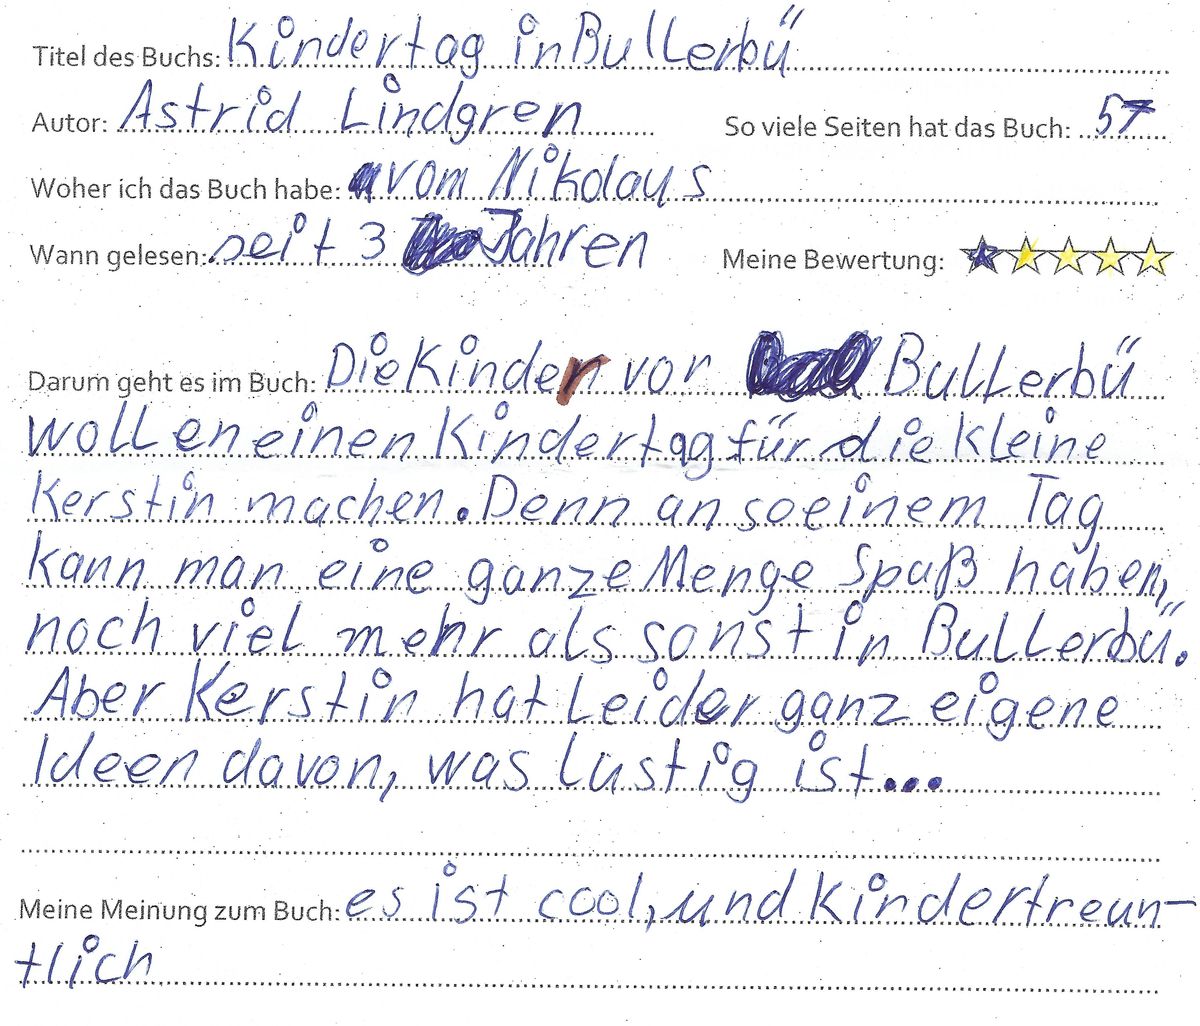 Titel des Buchs: Kindertag in Bullerbü
Autor: Astrid Lindgren So viele Seiten hat das Buch: 57
Woher ich das Buch habe: vom Nikolaus
Wann gelesen: seit 3 Jahren Meine Bewertung:
Darum geht es im Buch: Die Kinder vor Bullerbü
wollen einen Kindertag für die kleine
Kerstin machen. Denn an so einem Tag
kann man eine ganze Menge Spaß haben,
noch viel mehr als sonst in Bullerbü.
Aber Kerstin hat leider ganz eigene
Ideen davon, was lustig ist...
Meine Meinung zum Buch: es ist cool, und kindertreun-
tlich